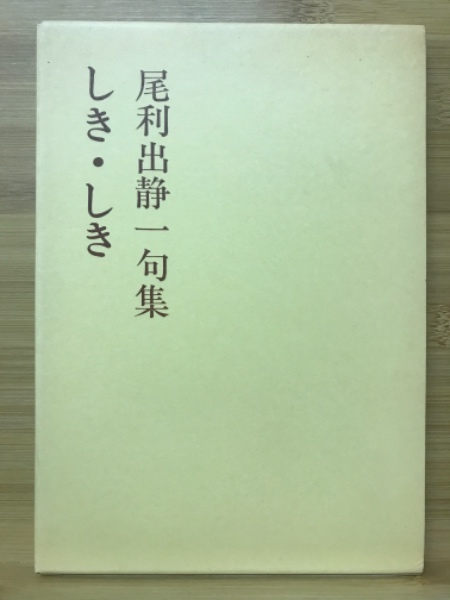 尾利出静一句集
しき・しき